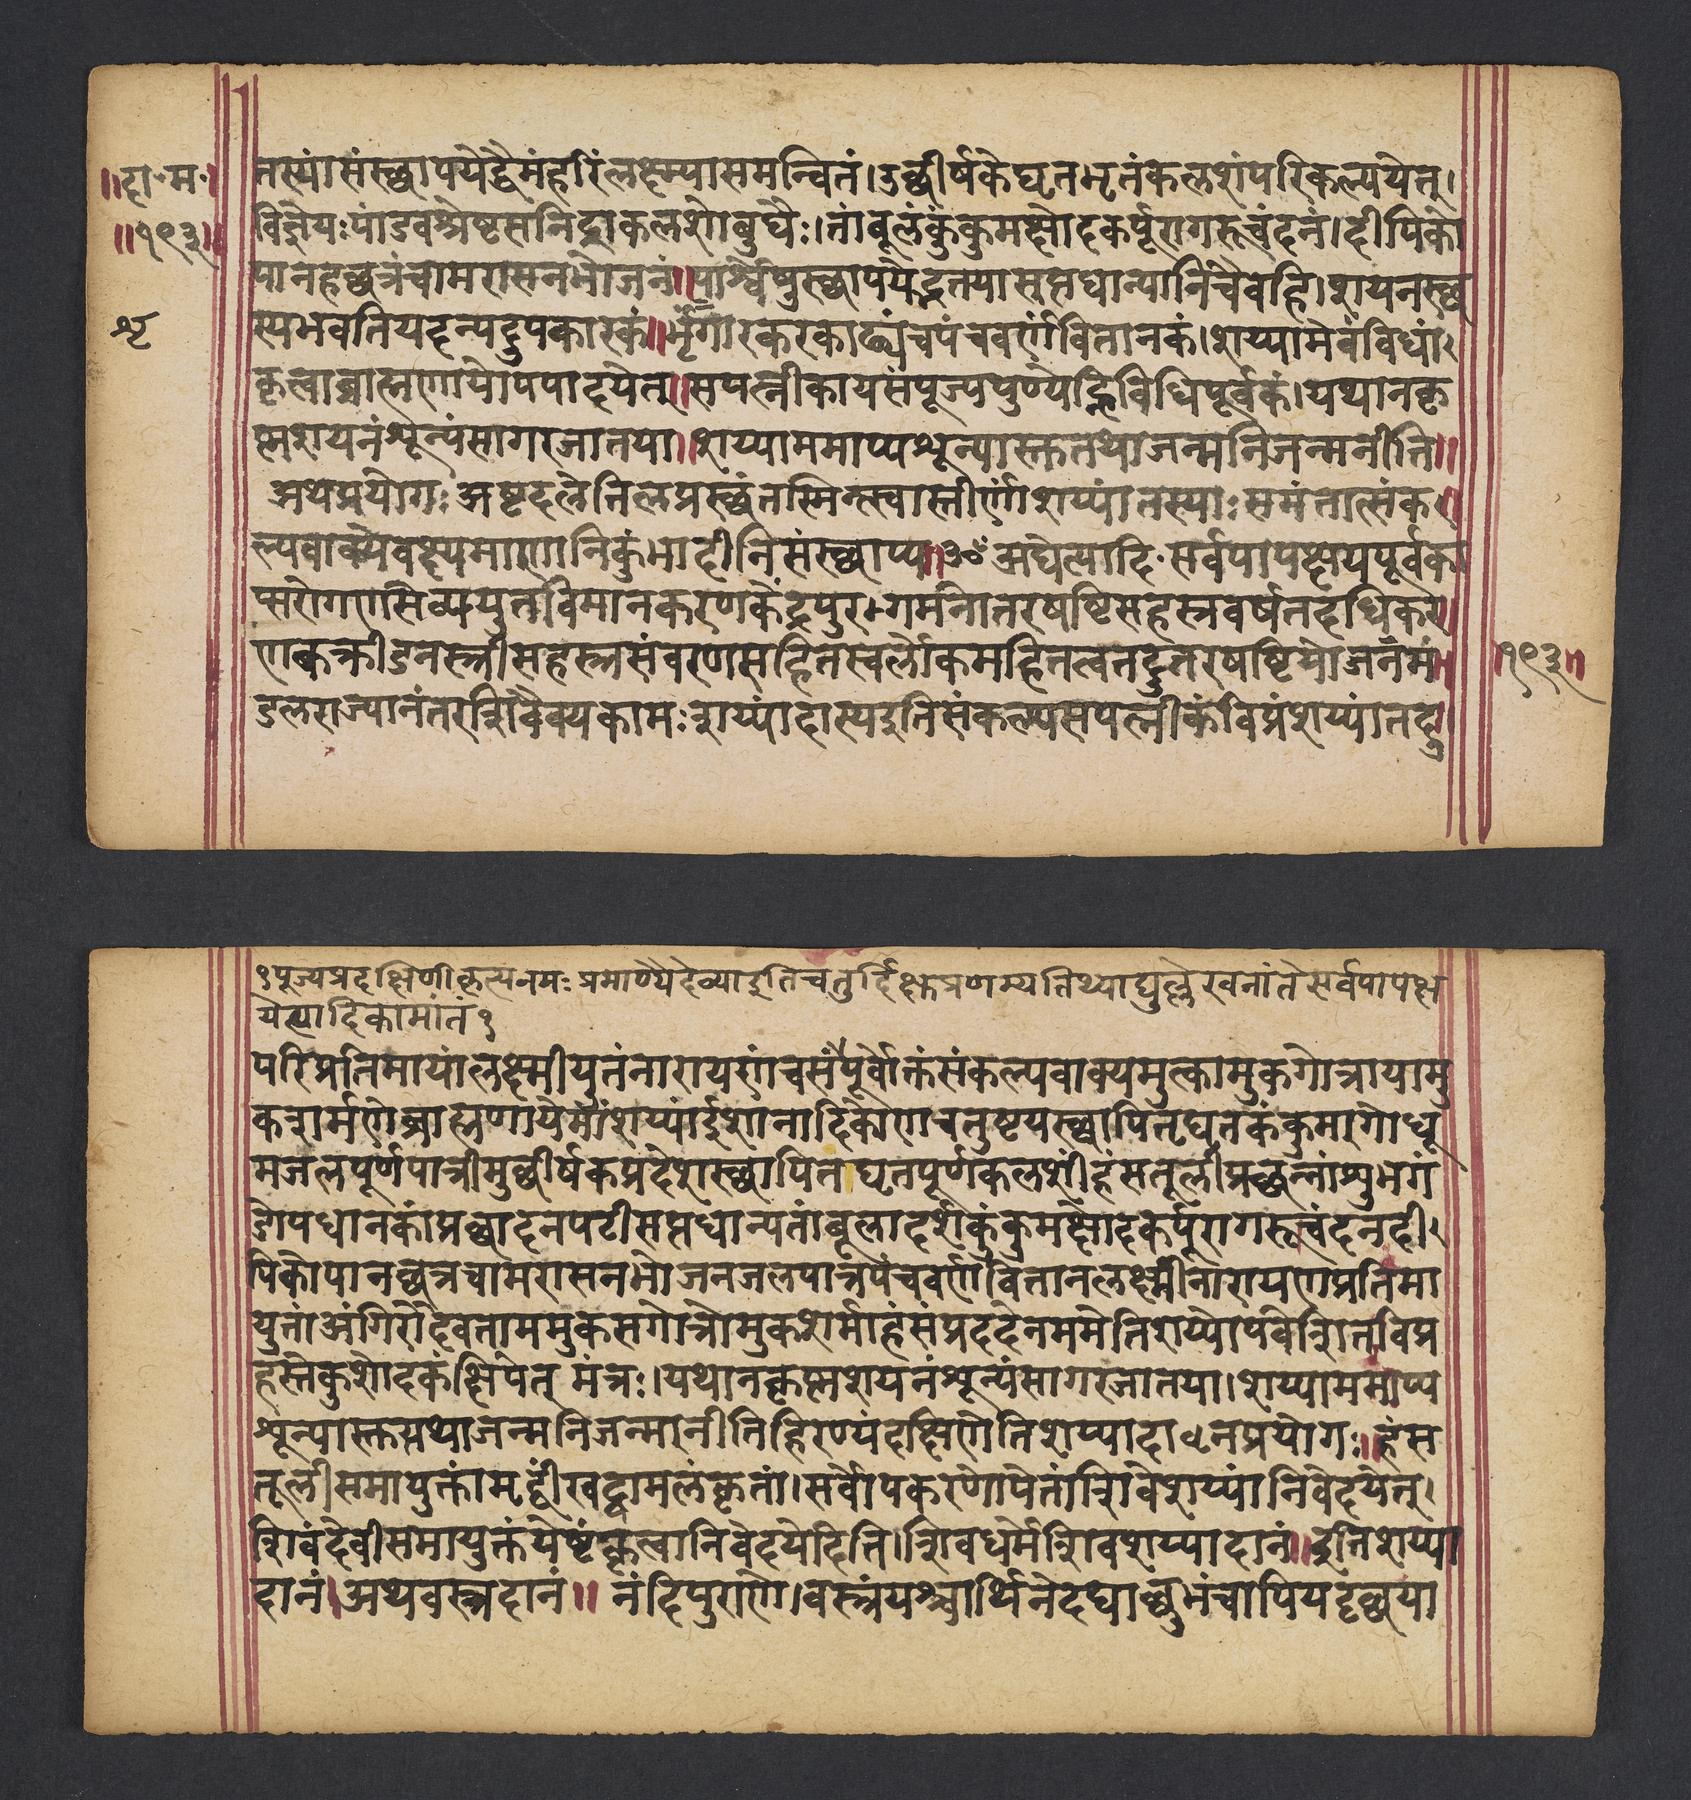 ॥दा॰म॰॥
॥१९३॥
शृ
तस्यां संस्छाप्ययेद्धैमंहरिंलक्ष्म्यासमन्वितं।उछीर्षकेघृतभृतंकलशंपरिकल्पयेत्।
विज्ञेयःपांडवश्रेष्टसनिद्राकलशोबुधैः।तांबूलंकुंकुमक्षोदकर्पूरागरुचंदनं।दीपिको
पानहछत्रंचामरासनभोजनं॥पार्श्वेषुस्छापयेद्भक्तयासप्तधान्यानिचैवहि।शयनस्छ
स्यभवतियदन्यदुपकारकं॥भृंगारकरकाढ्यंचपंचवर्णंवितानकं।शय्यामेवंविधां
कृत्वाब्राह्मणायोपपादयेत्॥सपत्नीकायसंपूज्यपुण्येह्निविधिपूर्वकं।यथानकृ
ष्मशयनंशून्यंसागरजातया॥शय्याममाप्यशून्यास्ततथाजन्मनिजन्मनीति॥
अथप्रयोगः अष्टदलेतिलप्रस्छंतस्मिन्त्स्वास्तीर्णांशय्यांतस्याःसमंतात्संक
ल्पवाक्येवक्ष्यमाणानिकुंभादीनिसंस्छाप्य॥ॐ अद्येत्यादि॰सर्वपापक्षयपूर्वका
प्सरोगणसेव्ययुतविमानकरणकेंद्रपुरगमनोतरषष्टिसहस्रवर्षतदधिकर
णकक्रीडनस्त्रीसहस्रसंवरणसहितस्वर्लोकमहितत्वतदुत्तरषष्टियोजनमं
डलराज्यानंतरशिवैक्यकामःशय्यांदास्यइतिसंकल्प्यसपत्नीकंविप्रंशय्यांतदु
॥१९३॥
१पूज्यप्रदक्षिणीकृत्यनमः प्रमाण्यैदेव्याइतिचतुर्दिक्षुप्रणम्यतिथ्याद्युल्लेखनांतेसर्वपापक्ष
येत्यादिकामांतं१
परिप्रतिमायांलक्ष्मीयुतंनारायणंचसंपूर्वोक्तंसंकल्पवाक्यमुत्कामुकगोत्रायामु
कशर्मणेब्राह्मणायेमांशय्यांईशानादिकोणचतुष्टयस्छापितघृतकंकुमागोधू
मजलपूर्णपात्रीमुछीर्षकप्रदेशस्छापितघृतपूर्णकलशींहंसतूलीप्रछन्नांशुभगं
डोपधानकांप्रछादनपटीसप्तधान्यतांबूलादर्शकुंकुमक्षोदकर्पूरागरुचंदनदी
पिकोपानछत्रचामरासनभोजनजलपात्रपंचवर्णवितानलक्ष्मीनारायणप्रतिमा
युतांअंगिरोदैवताममुकसगोत्रोमुकशर्माहंसंप्रददेनममेतिशय्योपवेशितविप्र
हस्तेकुशोदकंक्षिपेत् मंत्रः।यथानकृष्मशयनंशून्यंसागरजातया।शय्याममाप्य
शून्यास्ततथाजन्मनिजन्मनीतिहिरण्यंदक्षिणेतिशय्यादानप्रयोगः॥हंस
तूलीसमायुक्तांमृद्वींखट्वामलंकृतां।सर्वोपकरणोपेतांशिवेशय्यांनिवेदयेत्।
शिवंदेवीसमायुक्तंयेष्टंकृत्वानिवेदयेदिति।शिवधर्मेशिवशय्यादानं॥इतिशय्या
दानं॥अथवस्त्रदानं॥ नंदिपुराणे।वस्त्रंयश्चार्थिनेदद्याछुभंचापियदृछया